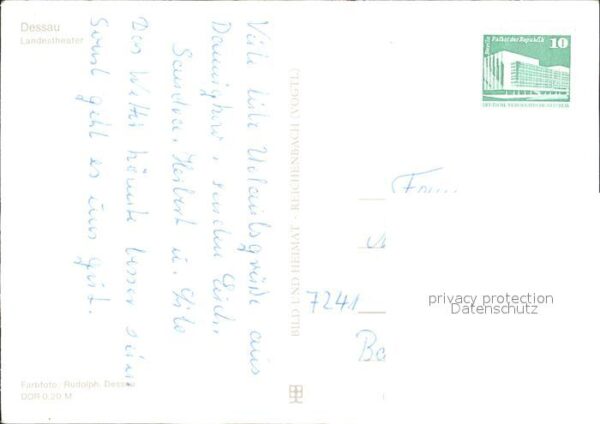 Dessau
Landestheater
Viele liebe Urlaubsgrüße aus
senden Euch
Sandra, Herbert u.
Das Wetter könnte besser sein
Sonst geht es uns gut.
Farbfoto: Rudolph, Dessau
DDR 0,20 M
BILD UND HEIMAT · REICHENBACH (VOGTL)
Berlin Palast der Republik
10
DEUTSCHE DEMOKRATISCHE REPUBLIK
7241
privacy protection
Datenschutz